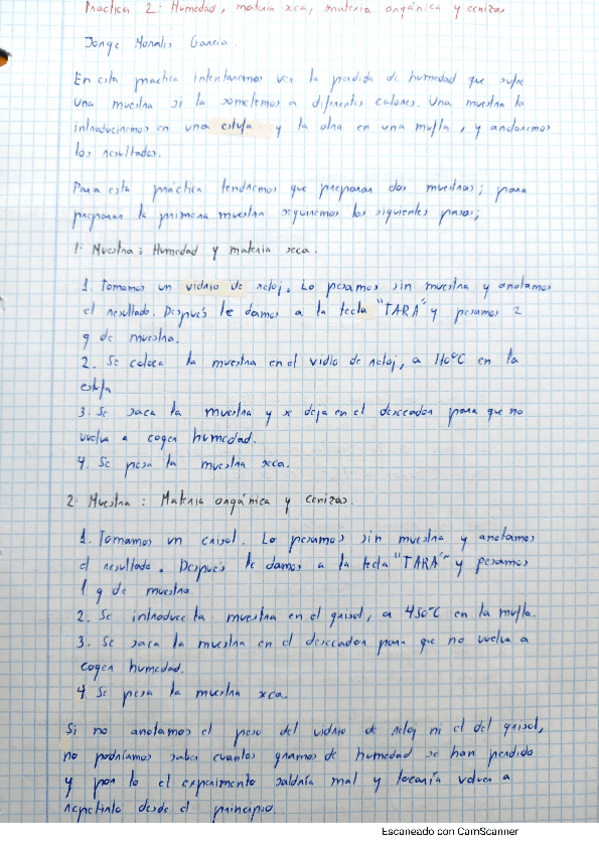 Práctica 2: Humedad, materia seca, materia orgánica y cenizas
Jorge Morales García.
En esta practica intentaremos ver la perdida de humedad que sufre
una muestra si la sometemos a diferentes calores. Una muestra la
introduciremos en una estufa y la otra en una mufla, y anotaremos
los resultados.
Para esta práctica tendremos que preparar dos muestras; para
preparar la primera muestra seguiremos los siguientes pasos;
1. Muestra: Humedad y materia seca.
1. Tomamos un vidrio de reloj. Lo pesamos sin muestra y anotamos
el resultado. Después le damos a la tecla "TARA" y pesamos 2
g de muestra.
2. Se coloca la muestra en el vidio de reloj, a 110°C en la
estufa
3. Se saca la muestra y se deja en el desecador para que no
vuelva a coger humedad.
4. Se pesa la muestra seca.
2. Muestra: Materia orgánica y cenizas.
1. Tomamos un crisol. Lo pesamos sin muestra y anotamos
el resultado. Después le damos a la tecla "TARA" y pesamos
1 g de muestra.
2. Se introduce la muestra en el grisol, a 450°C en la mufla.
3. Se saca la muestra en el desecador para que no vuelva a
coger humedad.
4. Se pesa la muestra seca.
Si no anotamos el peso del vidrio de reloj ni el del grisol,
no podríamos saber cuantos gramos de humedad se han perdido
y por lo el experimento saldría mal y tocaría volver a
repetirlo desde el principio.
Escaneado con CamScanner